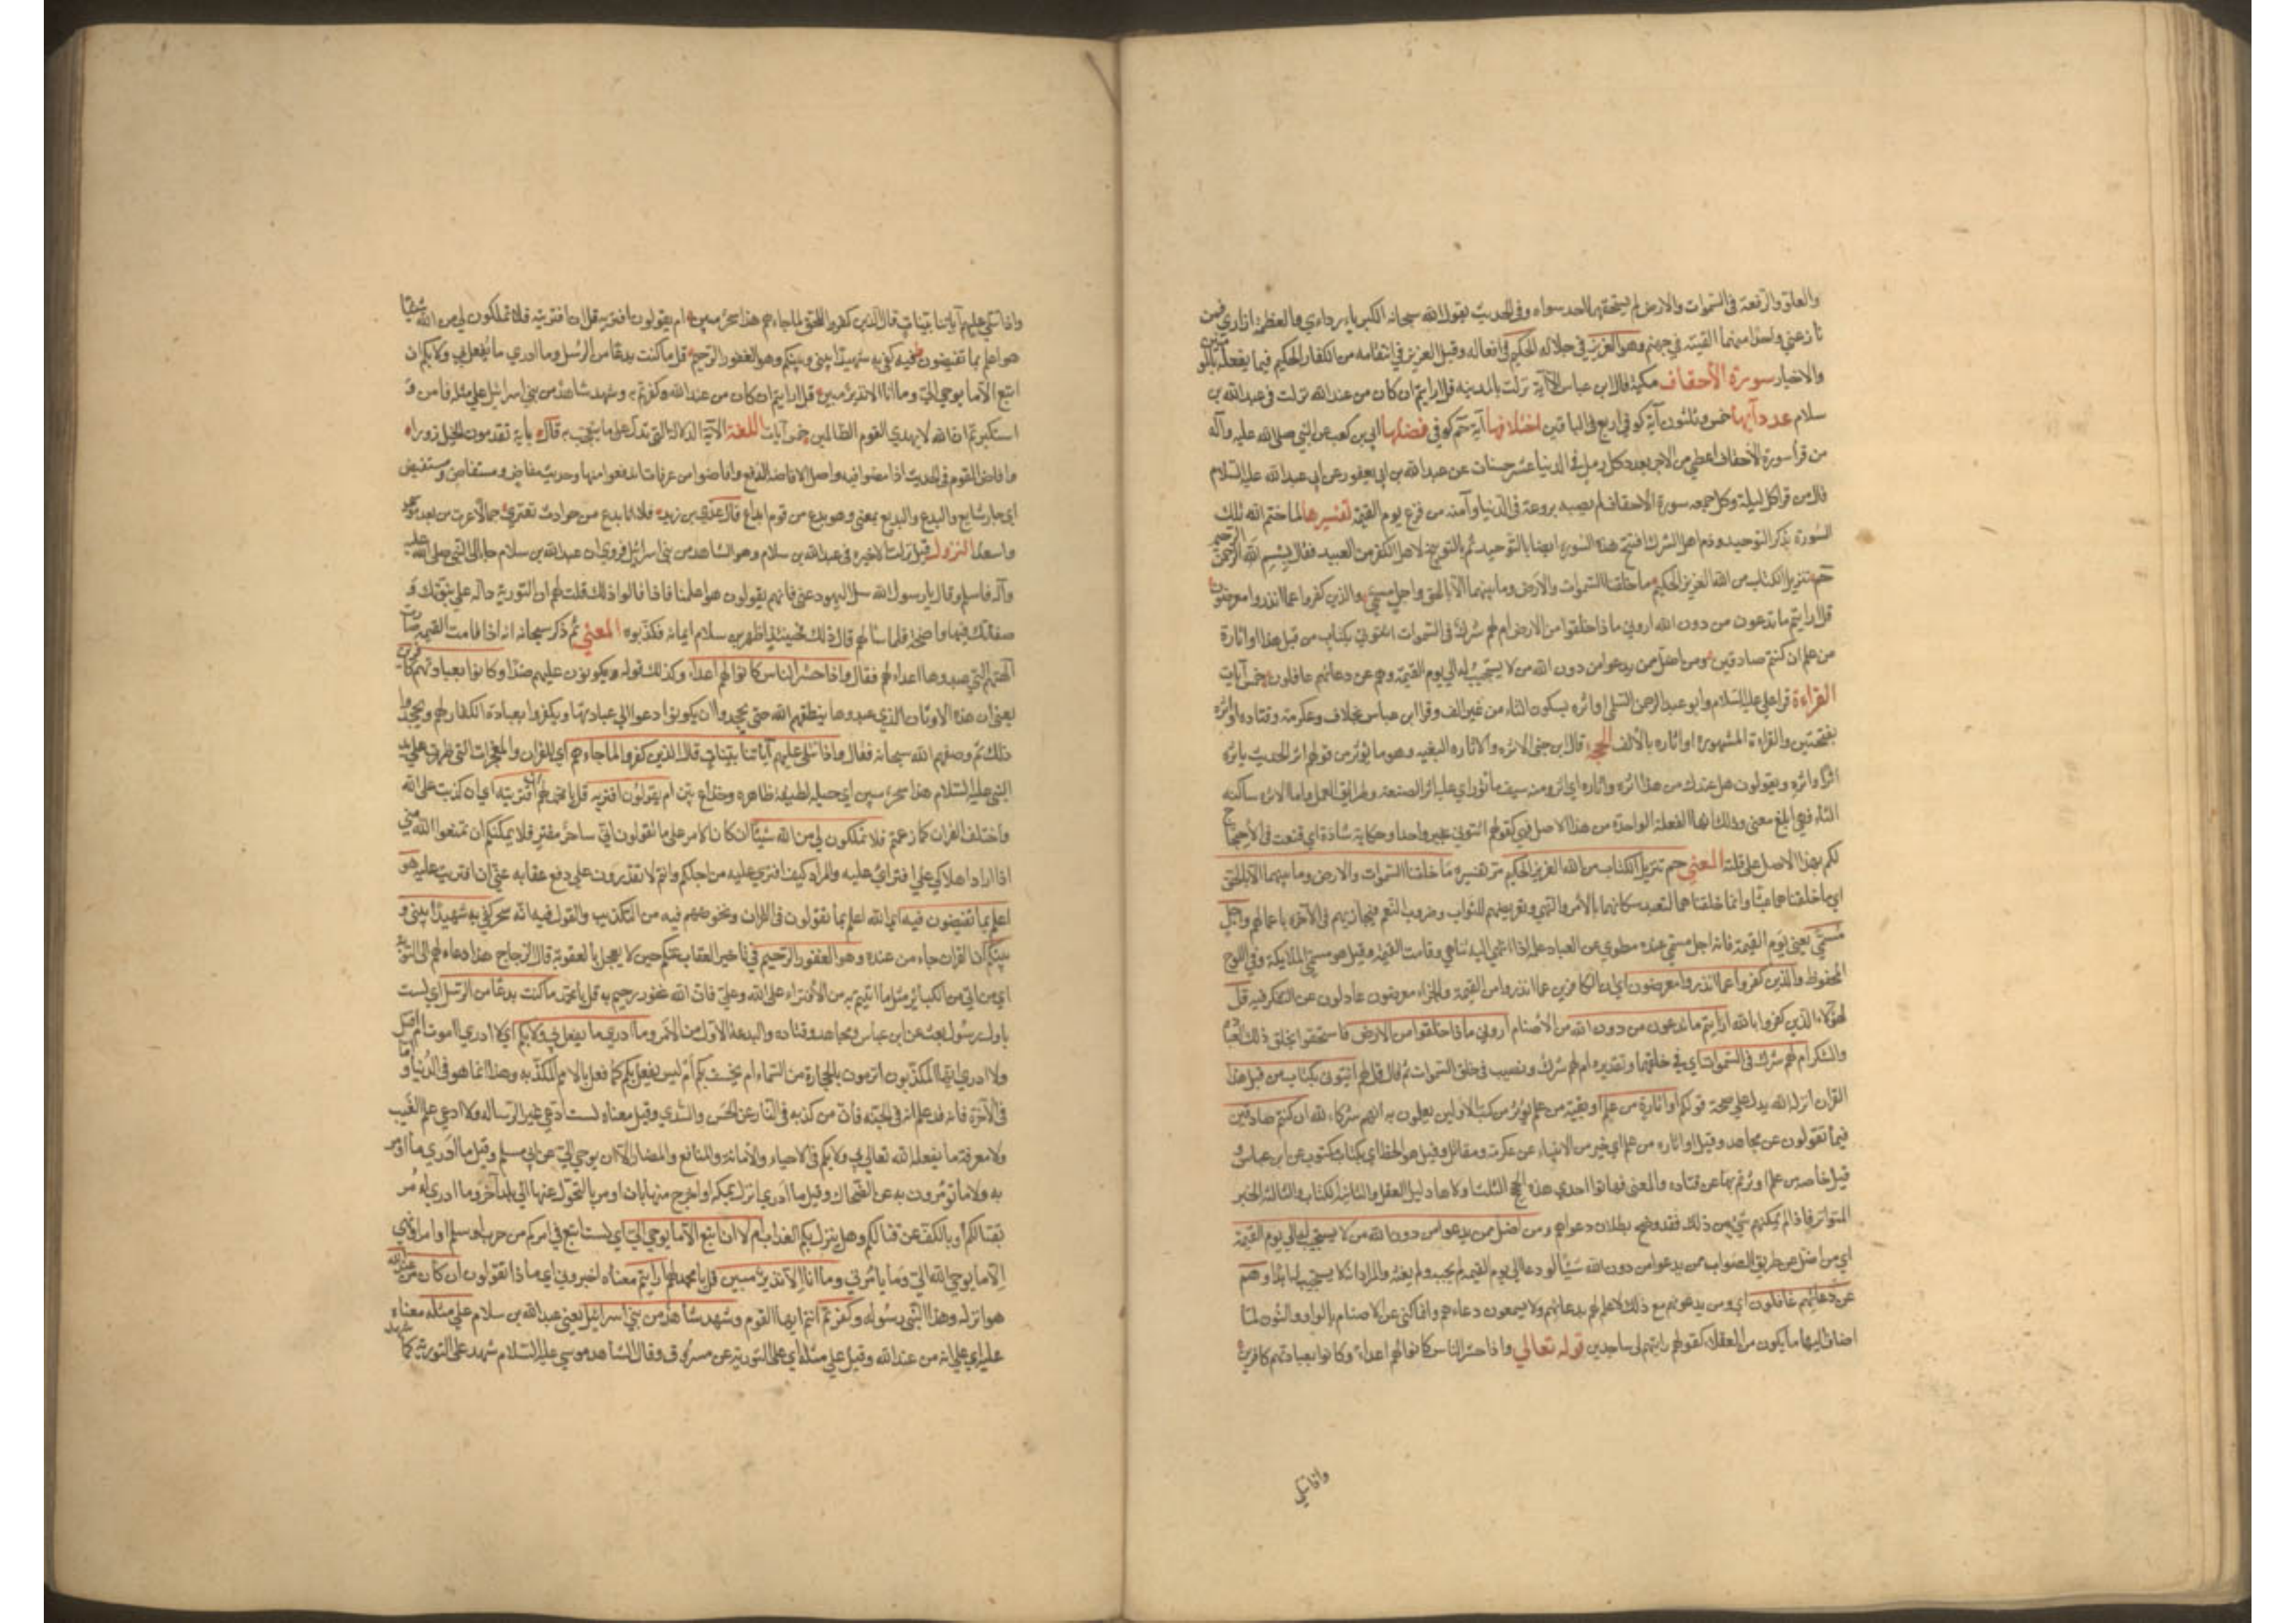 والعلو والرفعة في السموات والارض لم يستحقها احد سواه وفي الحديث يقول الله سبحانه الكبرياء ردائي والعظمة ازاري فمن
نازعني واحدا منهما القيته في جهنم وهو العزيز في جلاله الحكيم في افعاله وقيل العزيز في انتقامه من الكفار الحكيم فيما يفعله بالمؤمنين
والاخيار سورة الأحقاف مكية قال ابن عباس الا آية نزلت بالمدينه قل ارايتم ان كان من عند الله نزلت في عبدالله بن
سلام عدد آيها خمس وثلثون آية كوفي اربع في الباقين اختلافها آية حم كوفي فضلها ابي بن كعب عن النبي صلى الله عليه وآله
من قرأ سورة الأحقاف اعطي من الاجر بعدد كل رمل في الدنيا عشر حسنات عن عبد الله بن ابي يعفور عن ابي عبد الله عليه السلام
قال من قرا كل ليلة وكل جمعه سورة الاحقاف لم يصبه بروعة في الدنيا وآمنه من فزع يوم القيمة تفسيرها لما ختم الله تلك
السورة بذكر التوحيد وذم اهل الشرك افتتح هذه السورة ايضا بالتوحيد ثم بالتوبيخ لاهل الكفر من العبيد فقال بسم الله الرحمن الرحيم
حم تنزيل الكتاب من الله العزيز الحكيم ما خلقنا السموات والارض وما بينهما الا بالحق واجل مسمى والذين كفروا عما انذروا معرضون
قل ارايتم ما تدعون من دون الله اروني ماذا خلقوا من الارض ام لهم شرك في السموات ائتوني بكتاب من قبل هذا او اثارة
من علم ان كنتم صادقين ومن اضل ممن يدعوا من دون الله من لا يستجيب له الى يوم القيمة وهم عن دعائهم غافلون خمس آيات
القراءة قرا علي عليه السلام وابو عبد الرحمن السلمي او اثره بسكون الثاء من غير الف وقرا ابن عباس بخلاف وعكرمة وقتاده او اثره
بفتحتين والقراءة المشهورة او اثاره بالألف الحجة قال ابن جني الاثره والاثاره البقيه وهو ما يؤثر من قولهم اثر الحديث ياثره
اثرا واثره ويقولون هل عندك من هذا اثره واثاره اي اثر ومنه سيف مأثور اي عليه اثر الصنعة وطرايق العمل واما الاثره ساكنه
الثاء فهي ابلغ معنى وذلك انها الفعلة الواحدة من هذا الاصل فهي كقولهم ائتوني بخبر واحد او حكاية شاذة اي قنعت في الاحتجاج
لكم بهذا الاصل على قلته المعنى حم تنزيل الكتاب من الله العزيز الحكيم مر تفسيره ما خلقنا السموات والارض وما بينهما الا بالحق
اي ما خلقناهما عبثا وانما خلقناهما لتعبد سكانهما بالأمر والنهي وتعريضهم للثواب وضروب النعم فنجازيهم في الآخرة باعمالهم واجل
مسمى يعني يوم القيمة فانه اجل مسمى عنده مطوي عن العباد علمه اذا انتهى اليه تناهى وقامت القيمة وقيل هو مسمى للملايكة وفي اللوح
المحفوظ والذين كفروا عما انذروا معرضون اي ان الكافرين عما انذروا من القيمة والجزاء معرضون عادلون عن التفكر فيه قل
لهؤلاء الذين كفروا بالله ارايتم ما تدعون من دون الله من الأصنام اروني ماذا خلقوا من الارض فاستحقوا بخلق ذلك العبادة
والشكر ام لهم شرك في السموات اي في خلقها وتقديره ام لهم شرك ونصيب في خلق السموات ثم قال قل لهم ائتوني بكتاب من قبل هذا
القرآن انزله الله يدل على صحة قولكم او اثارة من علم او بقية من علم يؤثر من كتب الاولين يعلمون به انهم شركاء لله ان كنتم صادقين
فيما تقولون عن مجاهد وقيل او اثاره من علم اي خبر من الانبياء عن عكرمة ومقاتل وقيل هو الخط اي بكتاب مكتوب عن ابن عباس و
قيل خاصه من علم اوثرتم بها عن قتاده والمعنى فهاتوا احدى هذه الحجج الثلث اولاها دليل العقل والثانية الكتاب والثالثة الخبر
المتواتر فاذا لم يمكنهم شيء من ذلك فقد وضح بطلان دعواهم ومن اضل ممن يدعوا من دون الله من لا يستجيب له الى يوم القيمة
اي من اضل عن طريق الصواب ممن يدعوا من دون الله شيئا لو دعاه الى يوم القيمة لم يجبه ولم يغثه والمراد انه لا يستجيب له ابدا وهم
عن دعائهم غافلون اي ومن يدعونهم مع ذلك لا علم لهم بدعائهم ولا يسمعون دعاءهم وانما كنى عن الاصنام بالواو والنون لما
اضاف اليها ما يكون من العقلاء كقوله رايتهم لي ساجدين قوله تعالى واذا حشر الناس كانوا لهم اعداء وكانوا بعبادتهم كافرين
واذا تتلى
واذا تتلى عليهم آياتنا بينات قال الذين كفروا للحق لما جاءهم هذا سحر مبين ام يقولون افتريه قل ان افتريته فلا تملكون لي من الله شيئا
هو اعلم بما تفيضون فيه كفى به شهيدا بيني وبينكم وهو الغفور الرحيم قل ما كنت بدعا من الرسل وما ادري ما يفعل بي ولا بكم ان
اتبع الا ما يوحى الي وما انا الا نذير مبين قل ارايتم ان كان من عند الله وكفرتم به وشهد شاهد من بني اسرائيل على مثله فآمن و
استكبرتم ان الله لا يهدي القوم الظالمين خمس آيات اللغة الآية الدلالة التي تدل على ما يتعجب به قال بآية تقدمون الخيل زورا
وافاض القوم في الحديث اذا مضوا فيه واصل الافاضة الدفع وافاضوا من عرفات اندفعوا منها وحديث مفاض ومستفاض ومستفيض
اي جار شايع والبدع والبديع بمعنى وهو بدع من قوم ابداع قال عدي بن زيد فلا انا بدع من حوادث تعتري رجالا عرت من بعد بؤس
واسعد النزول قيل نزلت الاخيره في عبدالله بن سلام وهو الشاهد من بني اسرائيل فروي ان عبد الله بن سلام جاء الى النبي صلى الله عليه
وآله فاسلم وقال يا رسول الله سل اليهود عني فانهم يقولون هو اعلمنا فاذا قالوا ذلك قلت لهم ان التورية دالة على نبوتك و
صفاتك فيها واضحة فلما سألهم قالوا ذلك فحينئذ اظهر ابن سلام ايمانه فكذبوه المعنى ثم ذكر سبحانه انه اذا قامت القيمة صارت
آلهتهم التي عبدوها اعداء لهم فقال واذا حشر الناس كانوا لهم اعداء وكذلك قوله ويكونون عليهم ضدا وكانوا بعبادتهم كافرين
يعني ان هذه الاوثان الذي عبدوها ينطقهم الله حتى يجحدوا ان يكونوا دعوا الى عبادتها ويكفروا بعبادة الكفار لهم ويجحدوا
ذلك ثم وصفهم الله سبحانه فقال واذا تتلى عليهم آياتنا بينات قال الذين كفروا لما جاءهم اي للقرآن والمعجزات التي ظهرت على يد
النبي عليه السلام هذا سحر مبين اي حيلة لطيفة ظاهره وخداع بين ام يقولون افتريه قل يا محمد لهم ان افتريته اي ان كذبت على الله
واختلقت القران كما زعمتم فلا تملكون لي من الله شيئا ان كان الامر على ما تقولون اني ساحر مفتر فلا يمكنكم ان تمنعوا الله مني
اذا اراد اهلاكي على افترائي عليه والمراد كيف افتري عليه من اجلكم وانتم لا تقدرون على دفع عقابه عني ان افتريت عليه هو
اعلم بما تفيضون فيه اي الله اعلم بما تقولون في القران وتخوضون فيه من التكذيب والقول فيه انه سحر كفى به شهيدا بيني و
بينكم ان القران جاء من عنده وهو الغفور الرحيم في تاخير العقاب عنكم حين لا يعجل بالعقوبة قال الزجاج هذا دعاء لهم الى التوبة
اي من اتى من الكبائر مثل ما اتيتم به من الافتراء على الله وعلي فان الله غفور رحيم به قل يا محمد ما كنت بدعا من الرسل اي لست
باول رسول بعث عن ابن عباس ومجاهد وقتاده والبدعة الاول من الامر وما ادري ما يفعل بي ولا بكم اي لا ادري اموت ام اقتل
ولا ادري ايها المكذبون اترمون بالحجارة من السماء ام يخسف بكم ام ليس يفعل بكم كما فعل بالامم المكذبه وهذا انما هو في الدنيا واما
في الآخرة فانه قد علم انه في الجنة وان من كذبه في النار عن الحسن والسدي وقيل معناه لست ادعي غير الرساله ولا ادعي علم الغيب
ولا معرفة ما يفعله الله تعالى بي ولا بكم في الاحياء والاماتة والمنافع والمضار الا ان يوحى الي عن ابي مسلم وقيل ما ادري ما اومر
به ولا ما تؤمرون به عن الضحاك وقيل ما ادري اترك بمكة او اخرج منها بان اومر بالتحول عنها الى بلد آخر وما ادري اومر
بقتالكم او بالكف عن قتالكم وهل ينزل بكم العذاب ام لا ان اتبع الا ما يوحى الي اي لست اتبع في امركم من حرب او سلم او امر او نهي
الا ما يوحي الله الي وما يأمرني وما انا الا نذير مبين قل يا محمد لهم ارايتم معناه اخبروني اي ماذا تقولون ان كان من عند الله
هو انزله وهذا النبي رسوله وكفرتم انتم ايها القوم وشهد شاهد من بني اسرائيل يعني عبد الله بن سلام على مثله معناه شهد
عليه اي على انه من عند الله وقيل على مثله اي على التورية عن مسروق وقال الشاهد موسى عليه السلام شهد على التورية كما